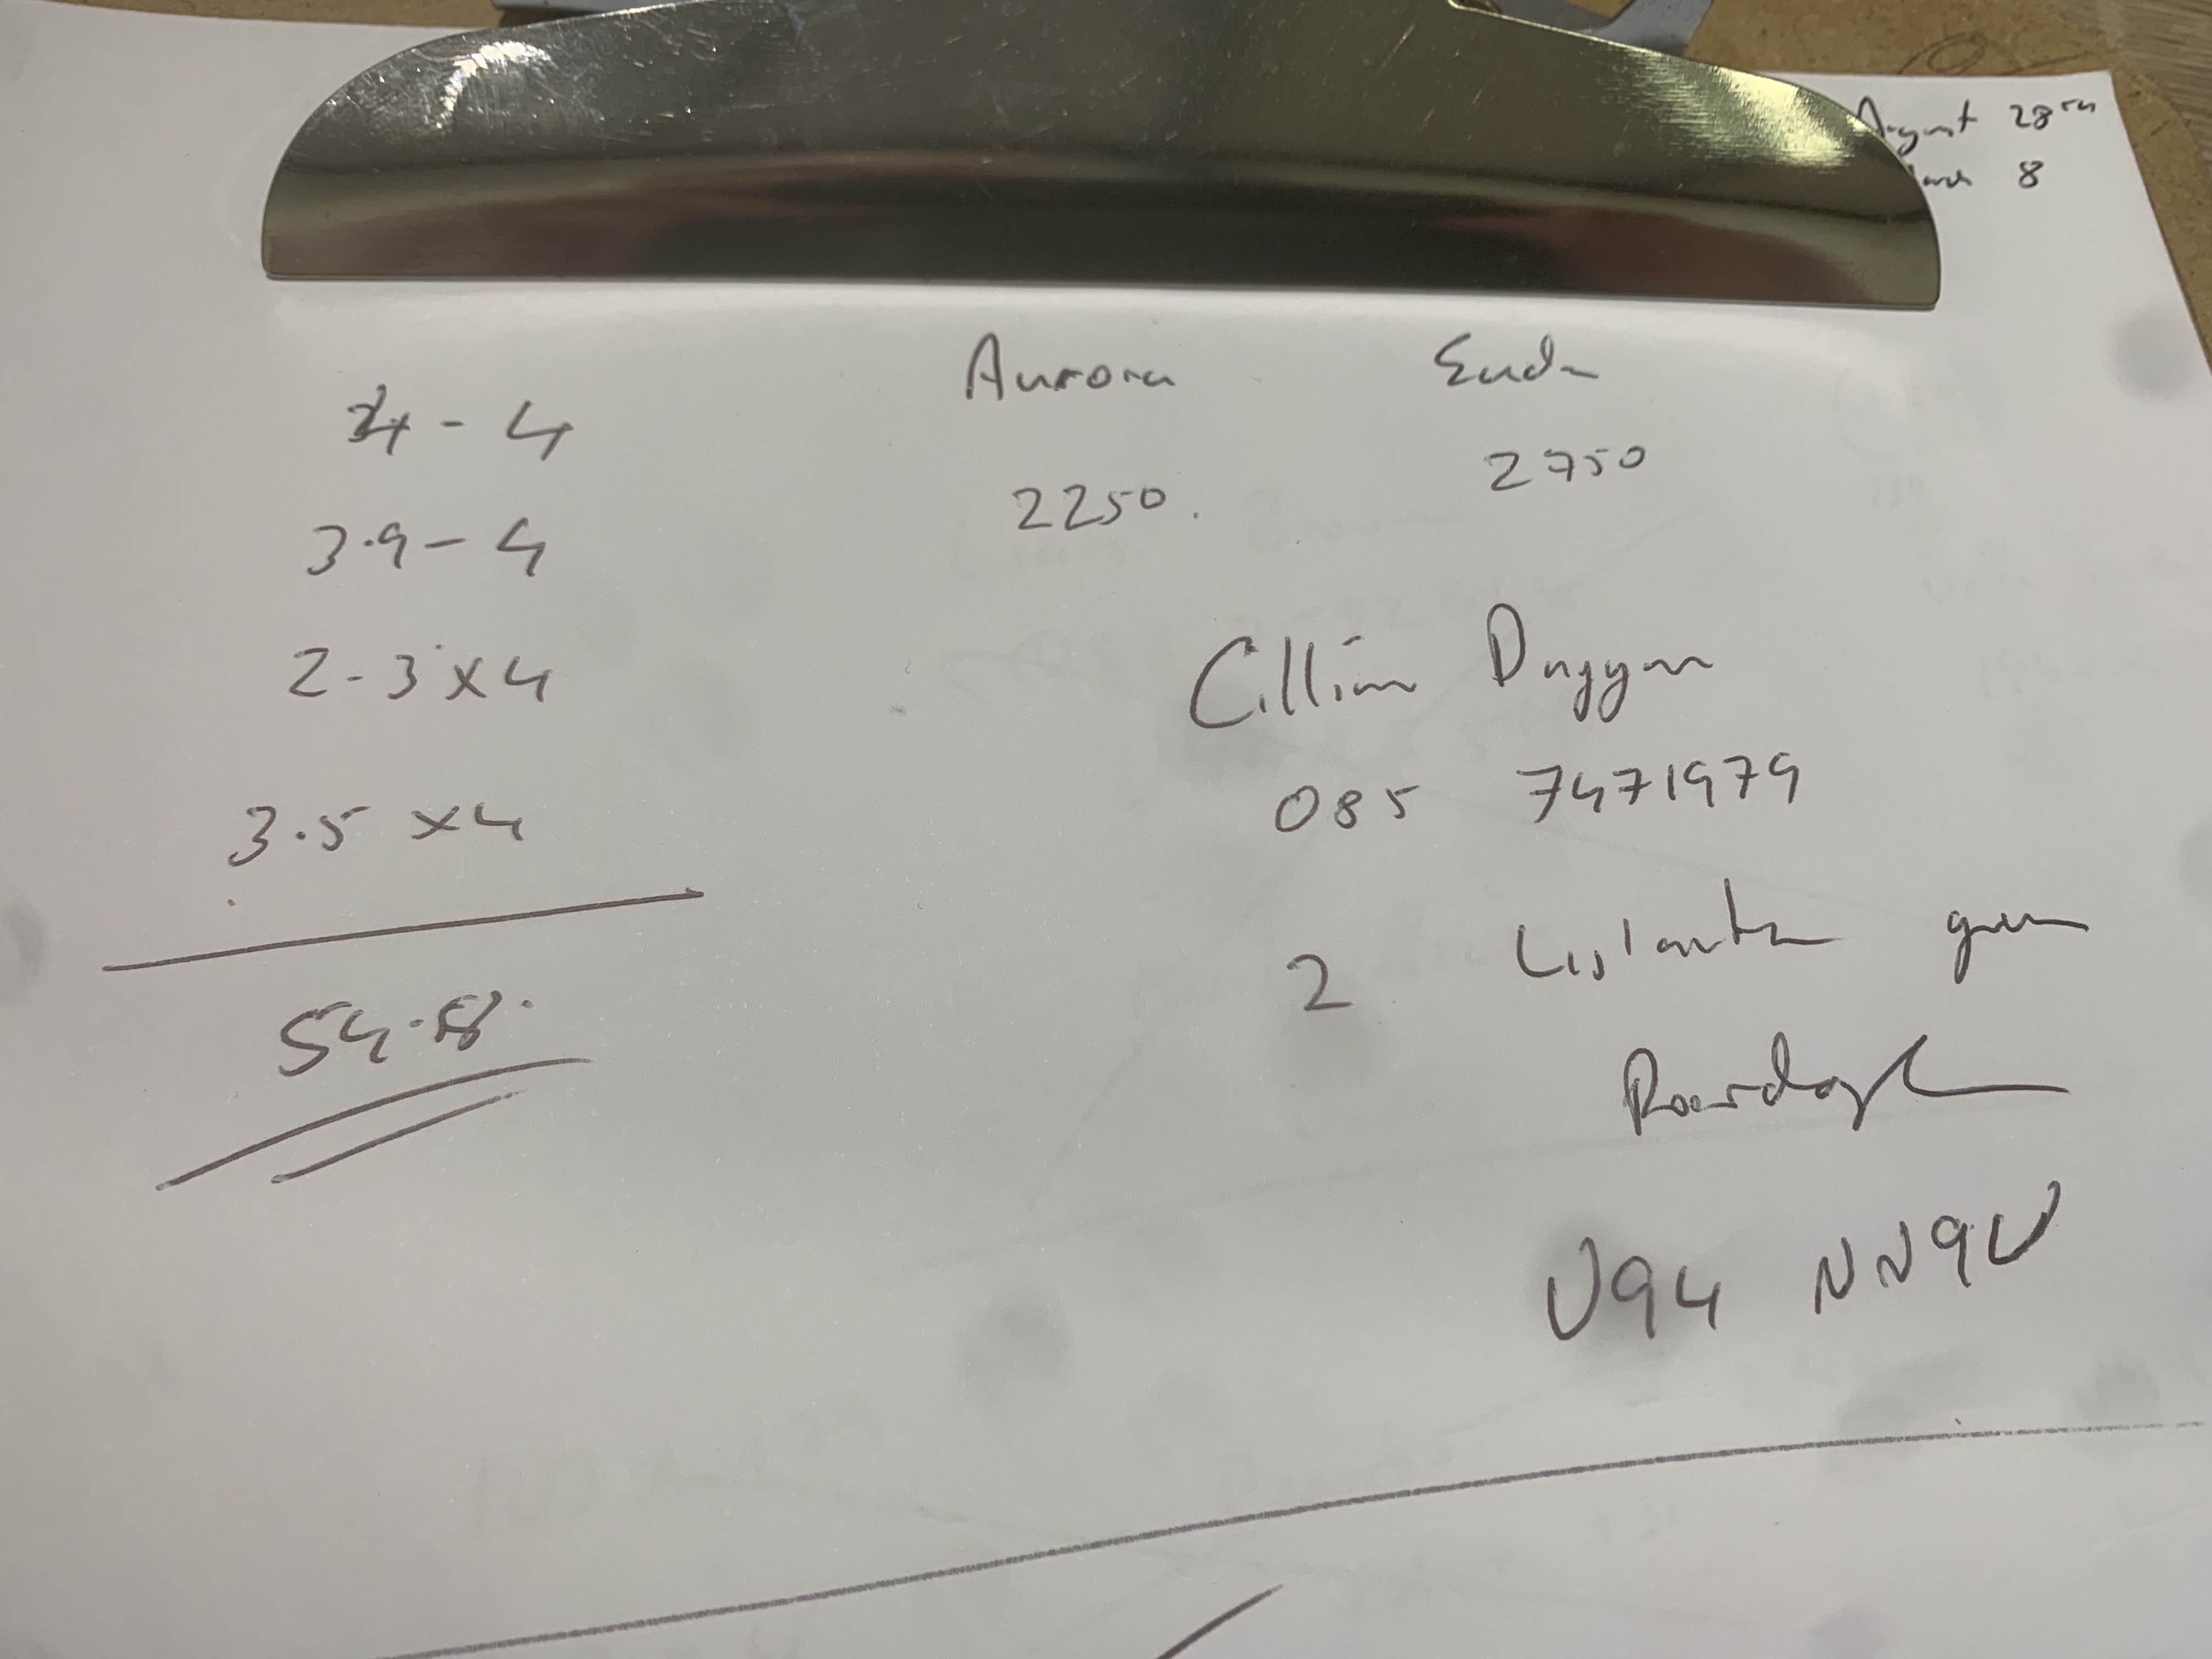 August 28th
8
Aurora Enda
4 - 4
2250. 2750
3.9 - 4
2.3 x 4
Cillian Duggan
3.5 x 4
085 7471979
54.8
2 green
V94 NN9V